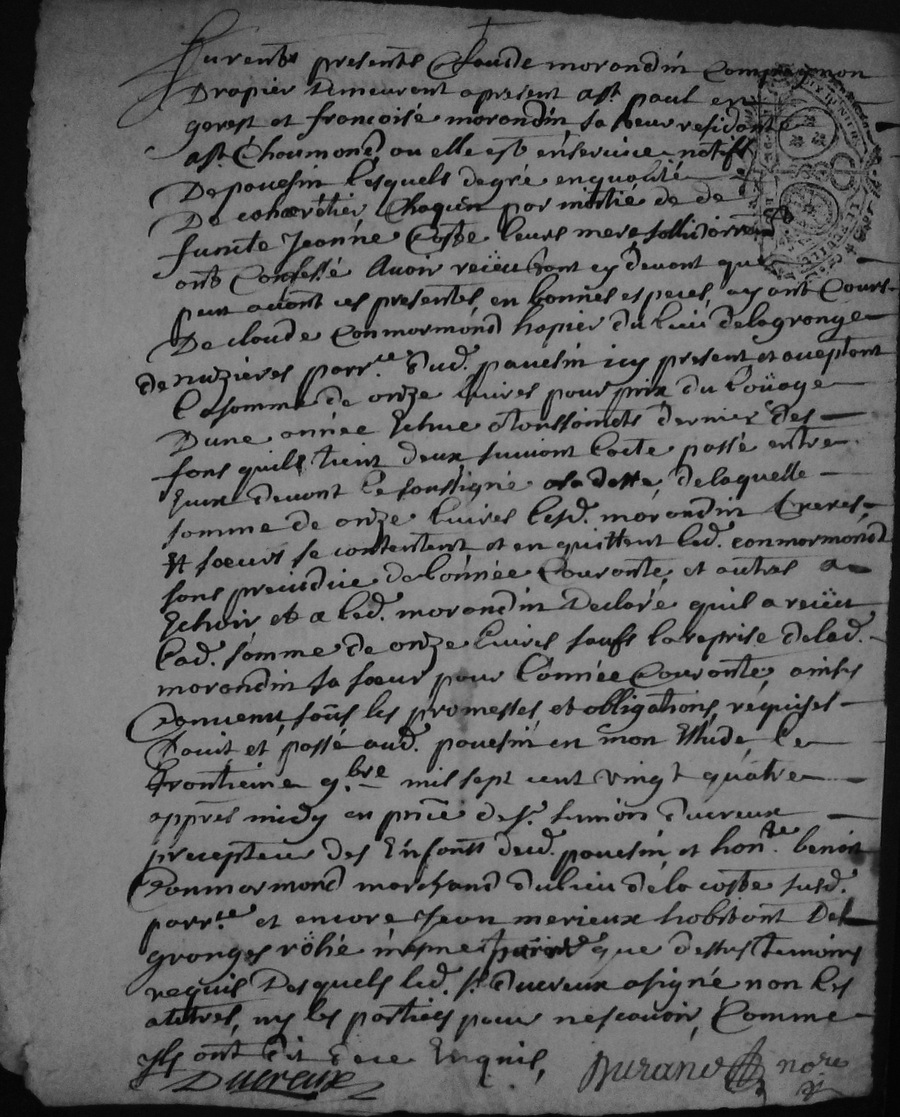 Furents presents Claude morandin Compagnon
Drapier Demeurent apresent a st. paul en
gerest et francoise morandin sa soeur residante
a st. Chaumond, ou elle est en service natifs
De pauesin lesquels de gré en qualité
De coheretier Chaqun par moitié de de
functe Jeanne Coste leurs mere sollidairem.t
ont Confessé Auoir reçeu tant cy deuant que
peu auant ces presentes, en bonnes especes, ayant Cours
De claude Conmarmond hapier du lieu de la grange
de nuzieres parr.e dud. pauesin icy present et aceptant
la somme de onze liures pour prix du loüage
Dune année Echue a toussaincts dernier des
fons quils tient deux suiuant lacte passé entre
Eux deuant le soussigné de laquelle
somme de onze liures lesd. morandin freres
Et soeurs se contentent et en quittent led. conmarmond
sans preiudice de lannée Courante, et autres a
Echoir et a led. morandin Declaré quil a reçeu
lad. somme de onze liures saufs la reprise de lad.
morandin sa soeur pour lannée Courante, ainsy
Conuenu, sous les promesses, et obligations, requises
fait et passé aud. pauesin en mon Etude, le
trantieme 9.bre mil sept cent vingt quatre
appres midy en pnce de s.r simon ducreux
precepteur des Enfants dud. pauesin, et hon.te benoit
Conmarmond marchand du lieu de la coste susd.
parr.e et encore Jean merieux habitant Des
granges mesme que dessus temoins
requis Desquels led. s.r Ducreux a signé non les
autres, ny les parties pour ne scauoir, Comme
yls ont dit de ce Enquis,
Ducreux Durand no.re